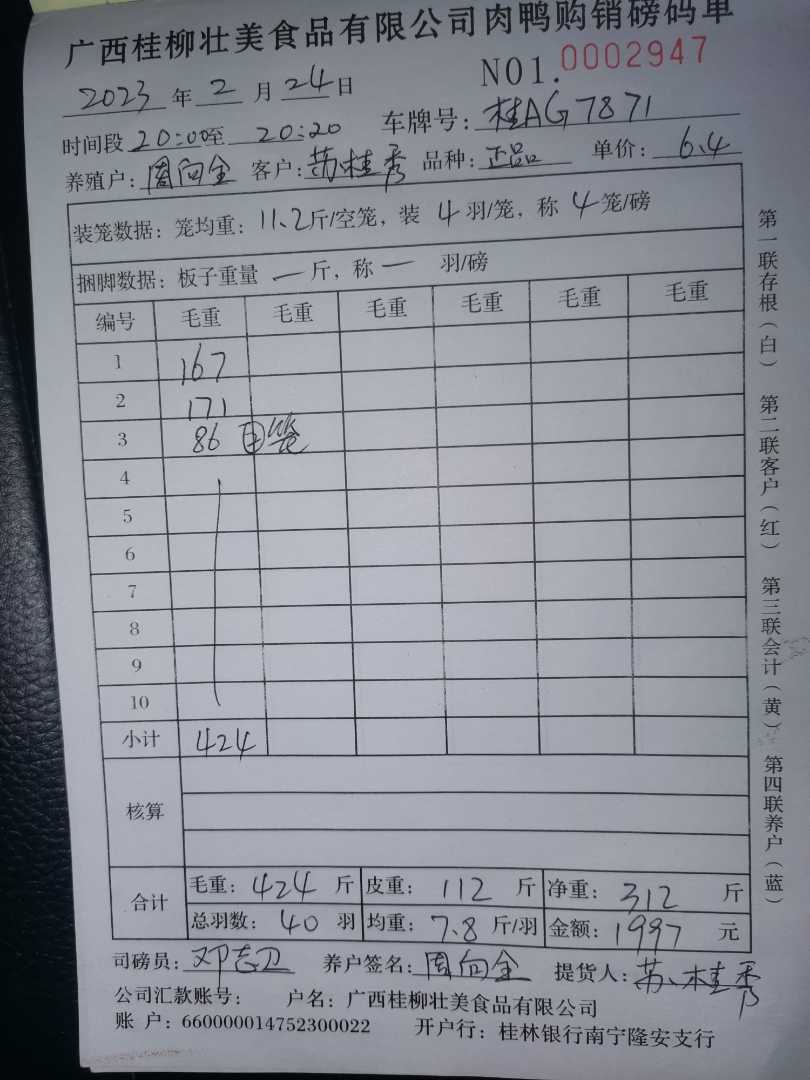 广西桂柳壮美食品有限公司肉鸭购销磅码单
2023 年 2 月 24 日 NO1. 0002947
时间段 20:00至 20:20 车牌号: 桂AG7871
养殖户: 周向全 客户: 苏桂秀 品种: 正品 单价: 6.4
装笼数据: 笼均重: 11.2斤/空笼, 装 4 羽/笼, 称 4 笼/磅
捆脚数据: 板子重量 一 斤, 称 一 羽/磅
编号 毛重 毛重 毛重 毛重 毛重 毛重
1 167
2 171
3 86 笼
4
5
6
7
8
9
10
小计 424
核算
合计 毛重: 424 斤 皮重: 112 斤 净重: 312 斤
总羽数: 40 羽 均重: 7.8 斤/羽 金额: 1997 元
司磅员: 邓志卫 养户签名: 周向全 提货人: 苏桂秀
公司汇款账号: 户名: 广西桂柳壮美食品有限公司
账 户: 660000014752300022 开户行: 桂林银行南宁隆安支行
第一联存根(白) 第二联客户(红) 第三联会计(黄) 第四联养户(蓝)